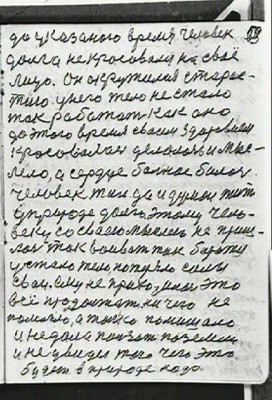 до указаного время. Человек
долга не красовался на своё
лицо. Он окружился старос-
тию. у него тело не стало
так работать как оно
до этого время своим здоровием
красовалось делалось и мыс-
лело, а сердце больное билось.
Человек так да и думал жить
в природе долго. Этому чело-
веку со своею мыслею не приш-
лось так воевать так борьбу
устало тело, потеряло силы
свои. Ему не приходилося это
всё продолжать ничего не
помогло, а только помешало
и недала пожить поземли
и не увидел того чего это
будет в природе надо.